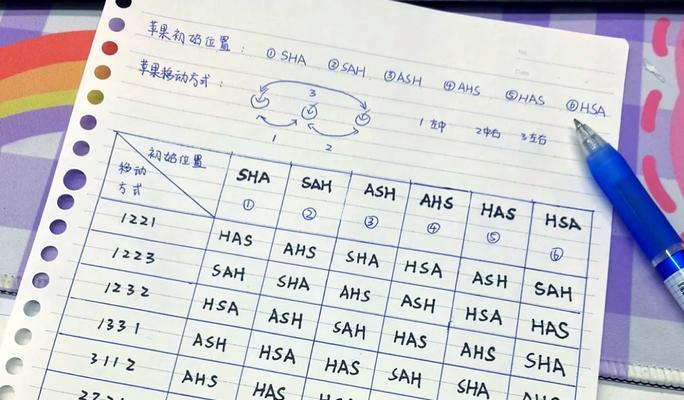 苹果初始位置： ①SHA ②SAH ③ASH ④AHS ⑤HAS ⑥HSA
苹果移动方式：
3
1 2
1左中 2中右 3左右
初始位置 SHA SAH ASH AHS HAS HSA
移动方式 ① ② ③ ④ ⑤ ⑥
1221 HAS AHS SHA HSA ASH SAH
1223 SAH SHA AHS ASH HSA HAS
1232 HSA ASH SAH HAS AHS SHA
1331 ASH HSA HAS SAH SHA AHS
3112 AHS HAS